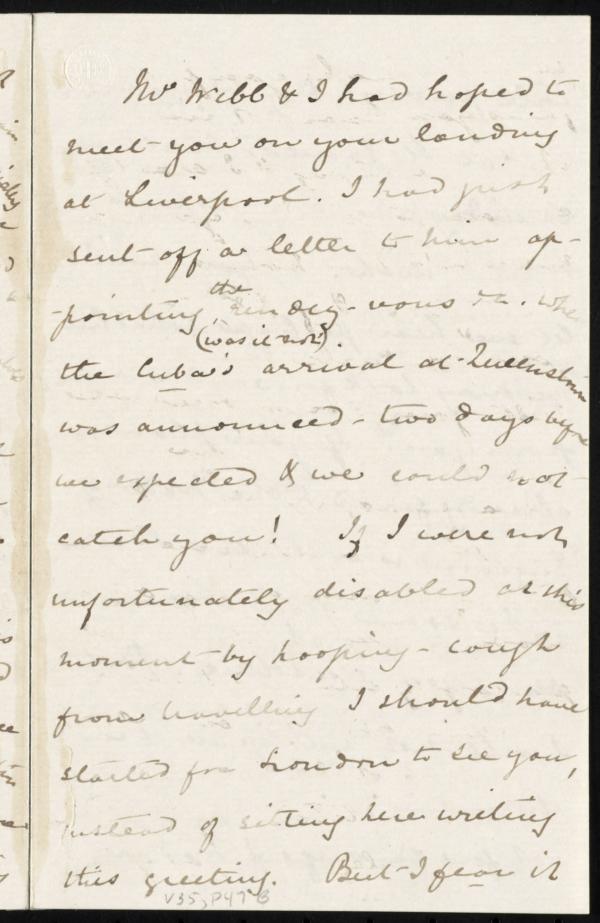 Mr Webb & I had hoped to
meet you on your landing
at Liverpool. I had just
sent off a letter to him ap-
-pointing the rendez-vous &c. whe
(was it not)
the Cuba's arrival at Queenstown
was announced - two days before
we expected & we could not
catch you! If I were not
unfortunately disabled at this
moment by hooping-cough
from travelling I should have
started for London to see you,
instead of sitting here writing
this greeting. But I fear it
V35, P47B